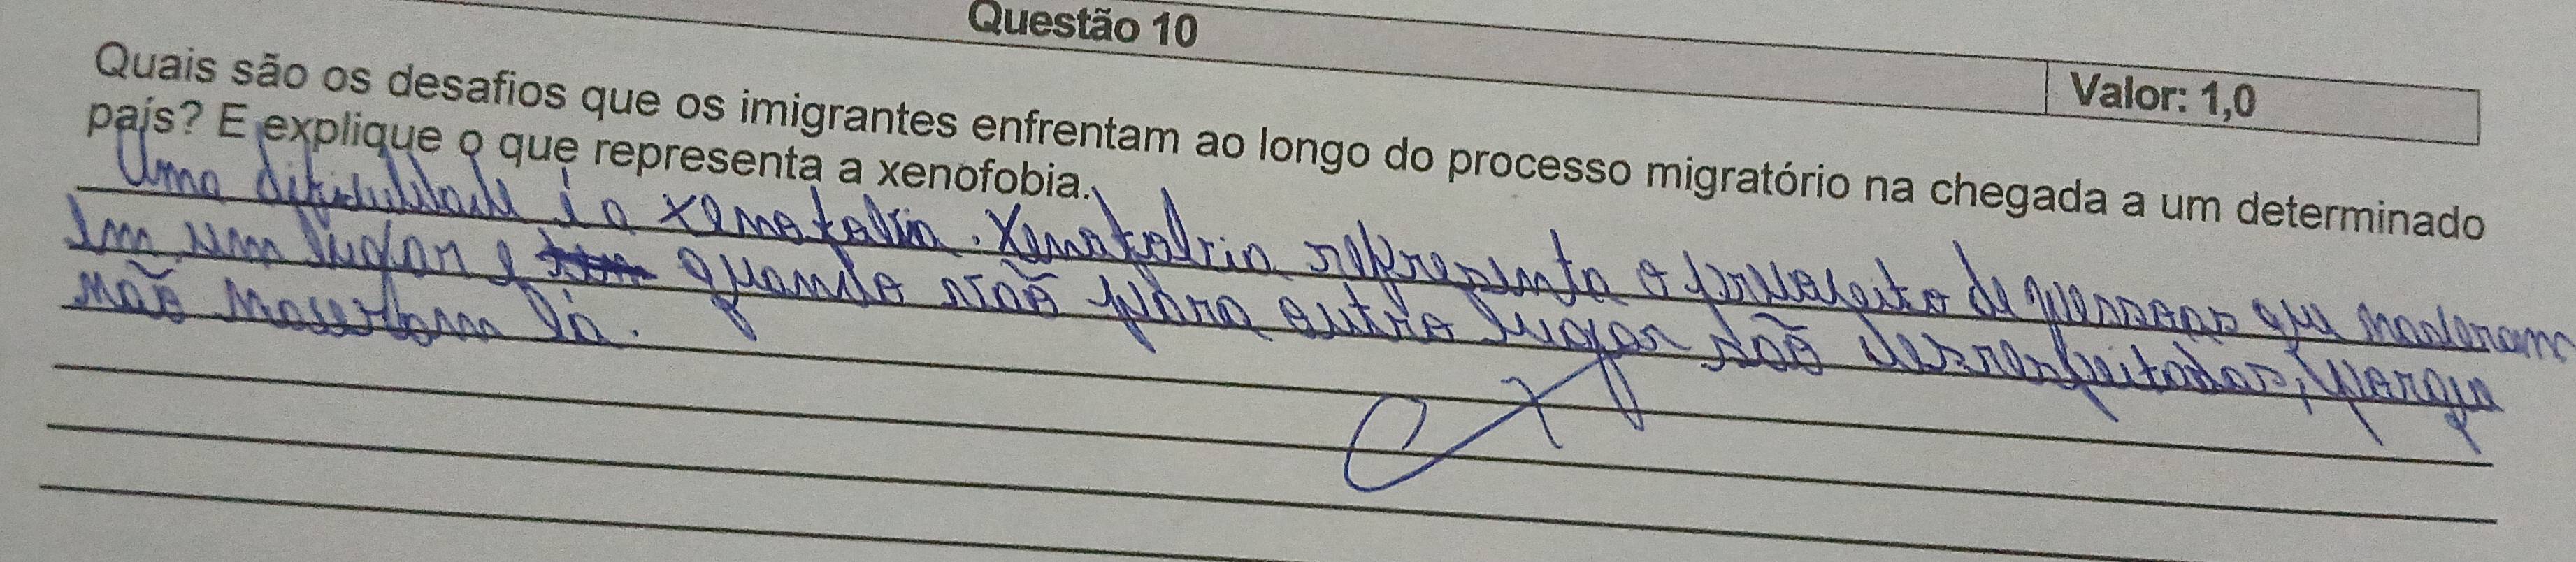 Questão 10
Valor: 1,0
Quais são os desafios que os imigrantes enfrentam ao longo do processo migratório na chegada a um determinado
país? E explique o que representa a xenofobia.
Uma dificuldade é a xenofobia. Xenofobia representa o preconceito de pessoas que moderam
em um lugar e quando vão para outro lugar são desrespeitadas, porque
não nasceram lá.